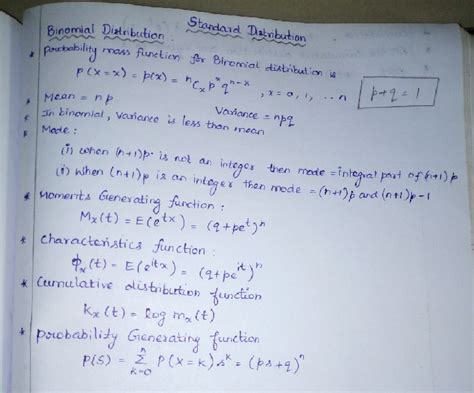 Standard Distribution
Binomial Distribution :
* Probability mass function for Binomial distribution is
P(X=x) = p(x) = ⁿCₓ pˣ qⁿ⁻ˣ , x=0, 1, ... n
p+q = 1
* Mean = np
Variance = npq
* In binomial, variance is less than mean
* Mode :
(i) when (n+1)p is not an integer then mode = integral part of (n+1)p
(i) When (n+1)p is an integer then mode = (n+1)p and (n+1)p-1
* Moments Generating function :
Mₓ(t) = E(eᵗˣ) = (q+peᵗ)ⁿ
* Characteristics function :
ϕₓ(t) = E(eⁱᵗˣ) = (q+peⁱᵗ)ⁿ
* Cumulative distribution function
kₓ(t) = log mₓ(t)
* probability Generating function
P(S) = Σₖ₌₀ⁿ P(X=k) sᵏ = (ps+q)ⁿ